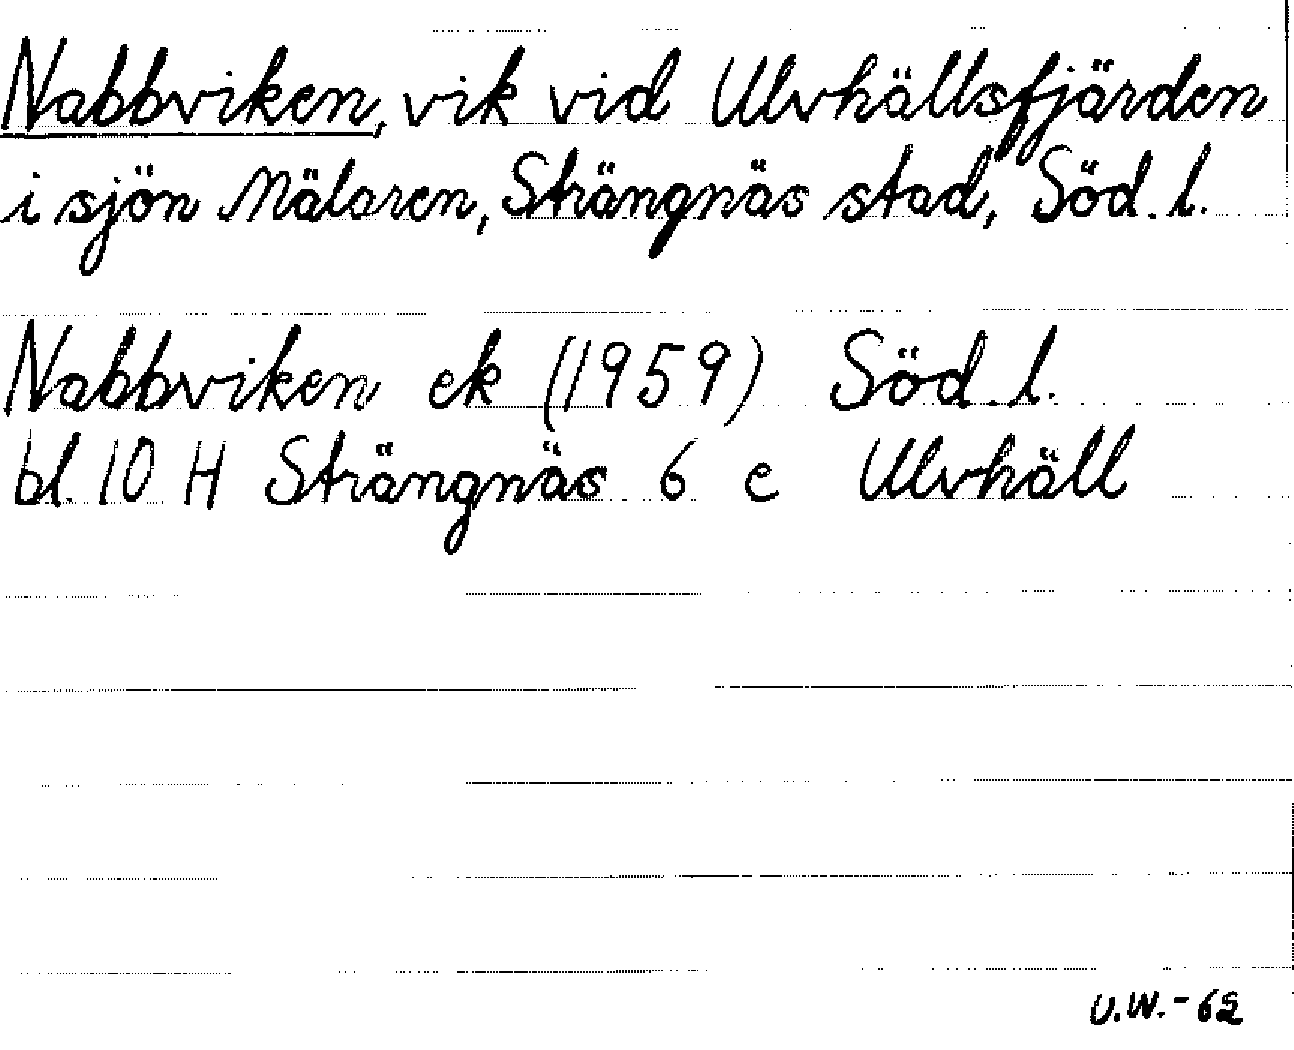 Nabbviken, vik vid Ulvhällsfjärden
i sjön Mälaren, Strängnäs stad, Söd. l.
Nabbviken ek (1959) Söd. l.
bl. 10 H Strängnäs 6 e Ulvhäll
U.W.-62